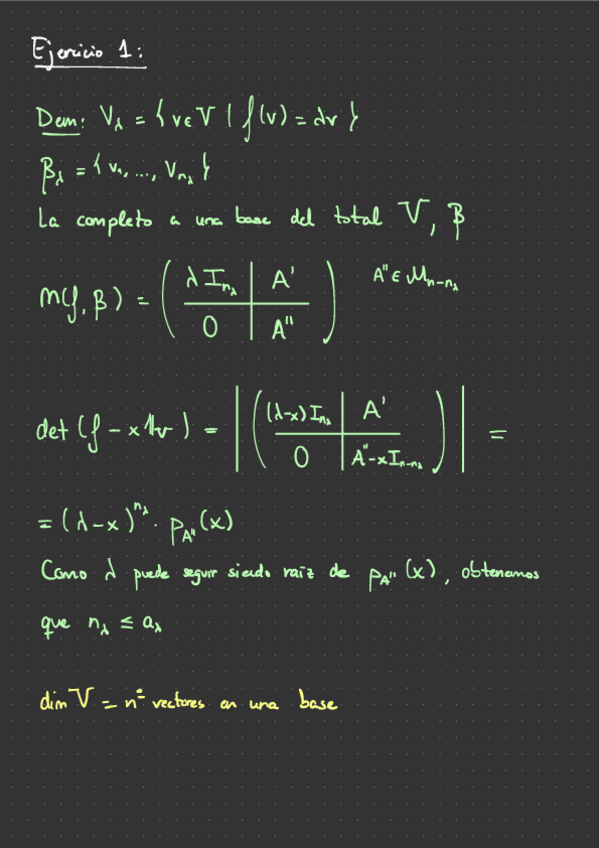 Ejercicio 1:
Dem: V_λ = { v ∈ V | f(v) = λv }
β_λ = { v₁, ..., v_{n_λ} }
La completo a una base del total V, β
m(f, β) = ( λ I_{n_λ} | A' ; 0 | A'' )   A'' ∈ M_{n-n_λ}
det (f - x 1_V) = | ( (λ-x) I_{n_λ} | A' ; 0 | A'' - x I_{n-n_λ} ) | =
= (λ - x)^{n_λ} · p_{A''}(x)
Como λ puede seguir siendo raíz de p_{A''}(x), obtenemos
que n_λ ≤ a_λ
dim V = nº vectores en una base